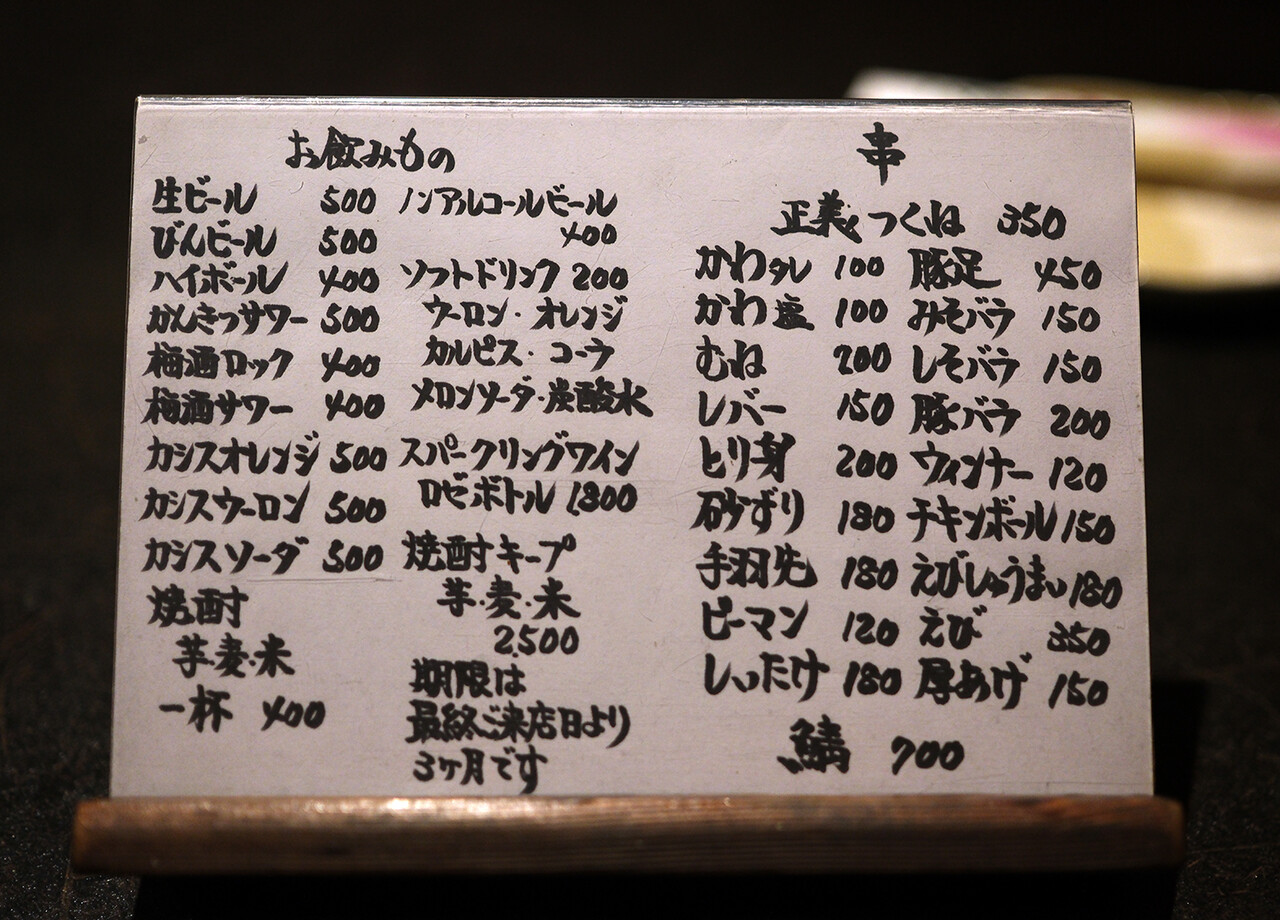 お飲みもの
生ビール 500
びんビール 500
ハイボール 400
かんきつサワー 500
梅酒ロック 400
梅酒サワー 400
カシスオレンジ 500
カシスウーロン 500
カシスソーダ 500
焼酎
芋・麦・米
一杯 400
ノンアルコールビール
400
ソフトドリンク 200
ウーロン・オレンジ
カルピス・コーラ
メロンソーダ・炭酸水
スパークリングワイン
ロゼボトル 1,800
焼酎キープ
芋・麦・米
2,500
期限は
最終ご来店日より
3ヶ月です
串
正義つくね 350
かわタレ 100
かわ塩 100
むね 200
レバー 150
とり身 200
砂ずり 180
手羽先 180
ピーマン 120
しいたけ 180
豚足 450
みそバラ 150
しそバラ 150
豚バラ 200
ウィンナー 120
チキンボール 150
えびしゅうまい 180
えび 350
厚あげ 150
鯖 700